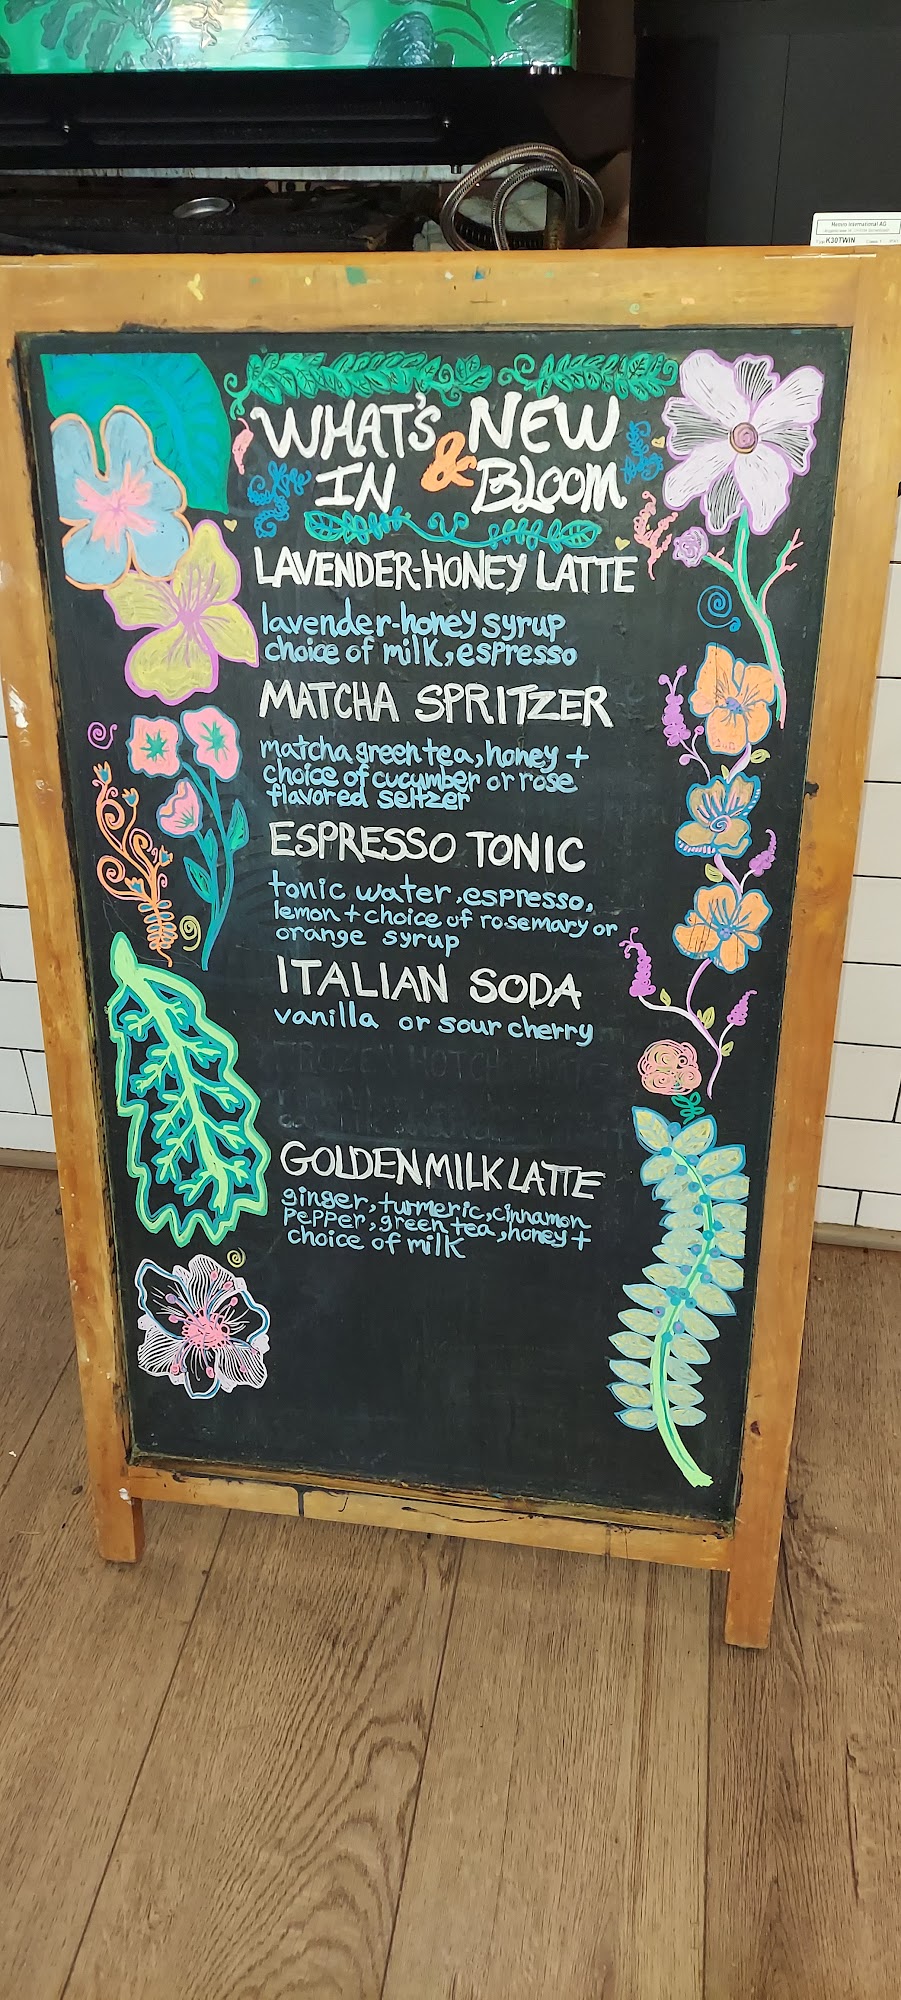 Remos International AG
K30TWIN
WHAT'S NEW
IN & BLOOM
LAVENDER-HONEY LATTE
lavender-honey syrup
choice of milk, espresso
MATCHA SPRITZER
matcha green tea, honey +
choice of cucumber or rose
flavored seltzer
ESPRESSO TONIC
tonic water, espresso,
lemon + choice of rosemary or
orange syrup
ITALIAN SODA
vanilla or sour cherry
GOLDEN MILK LATTE
ginger, turmeric, cinnamon
pepper, green tea, honey +
choice of milk